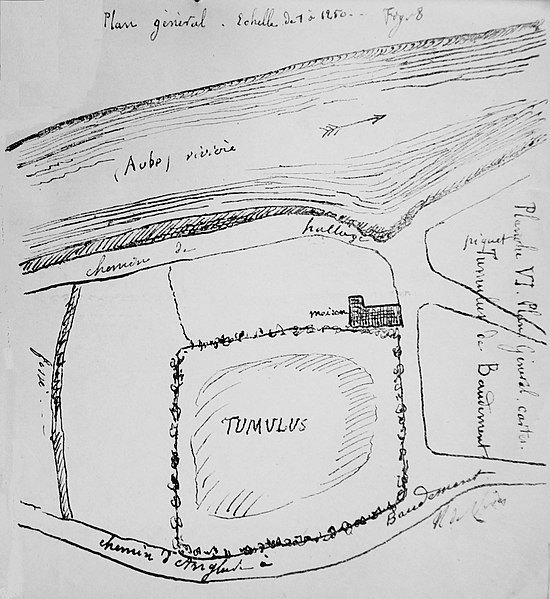 Plan général. Echelle de 1 à 1250. Fig. 8
(Aube) rivière
chemin de hallage
maison
fossé
TUMULUS
chemin d'Anglure à Baudement
piquet
Planche VI. Plan général. cartes.
Tumulus de Baudement